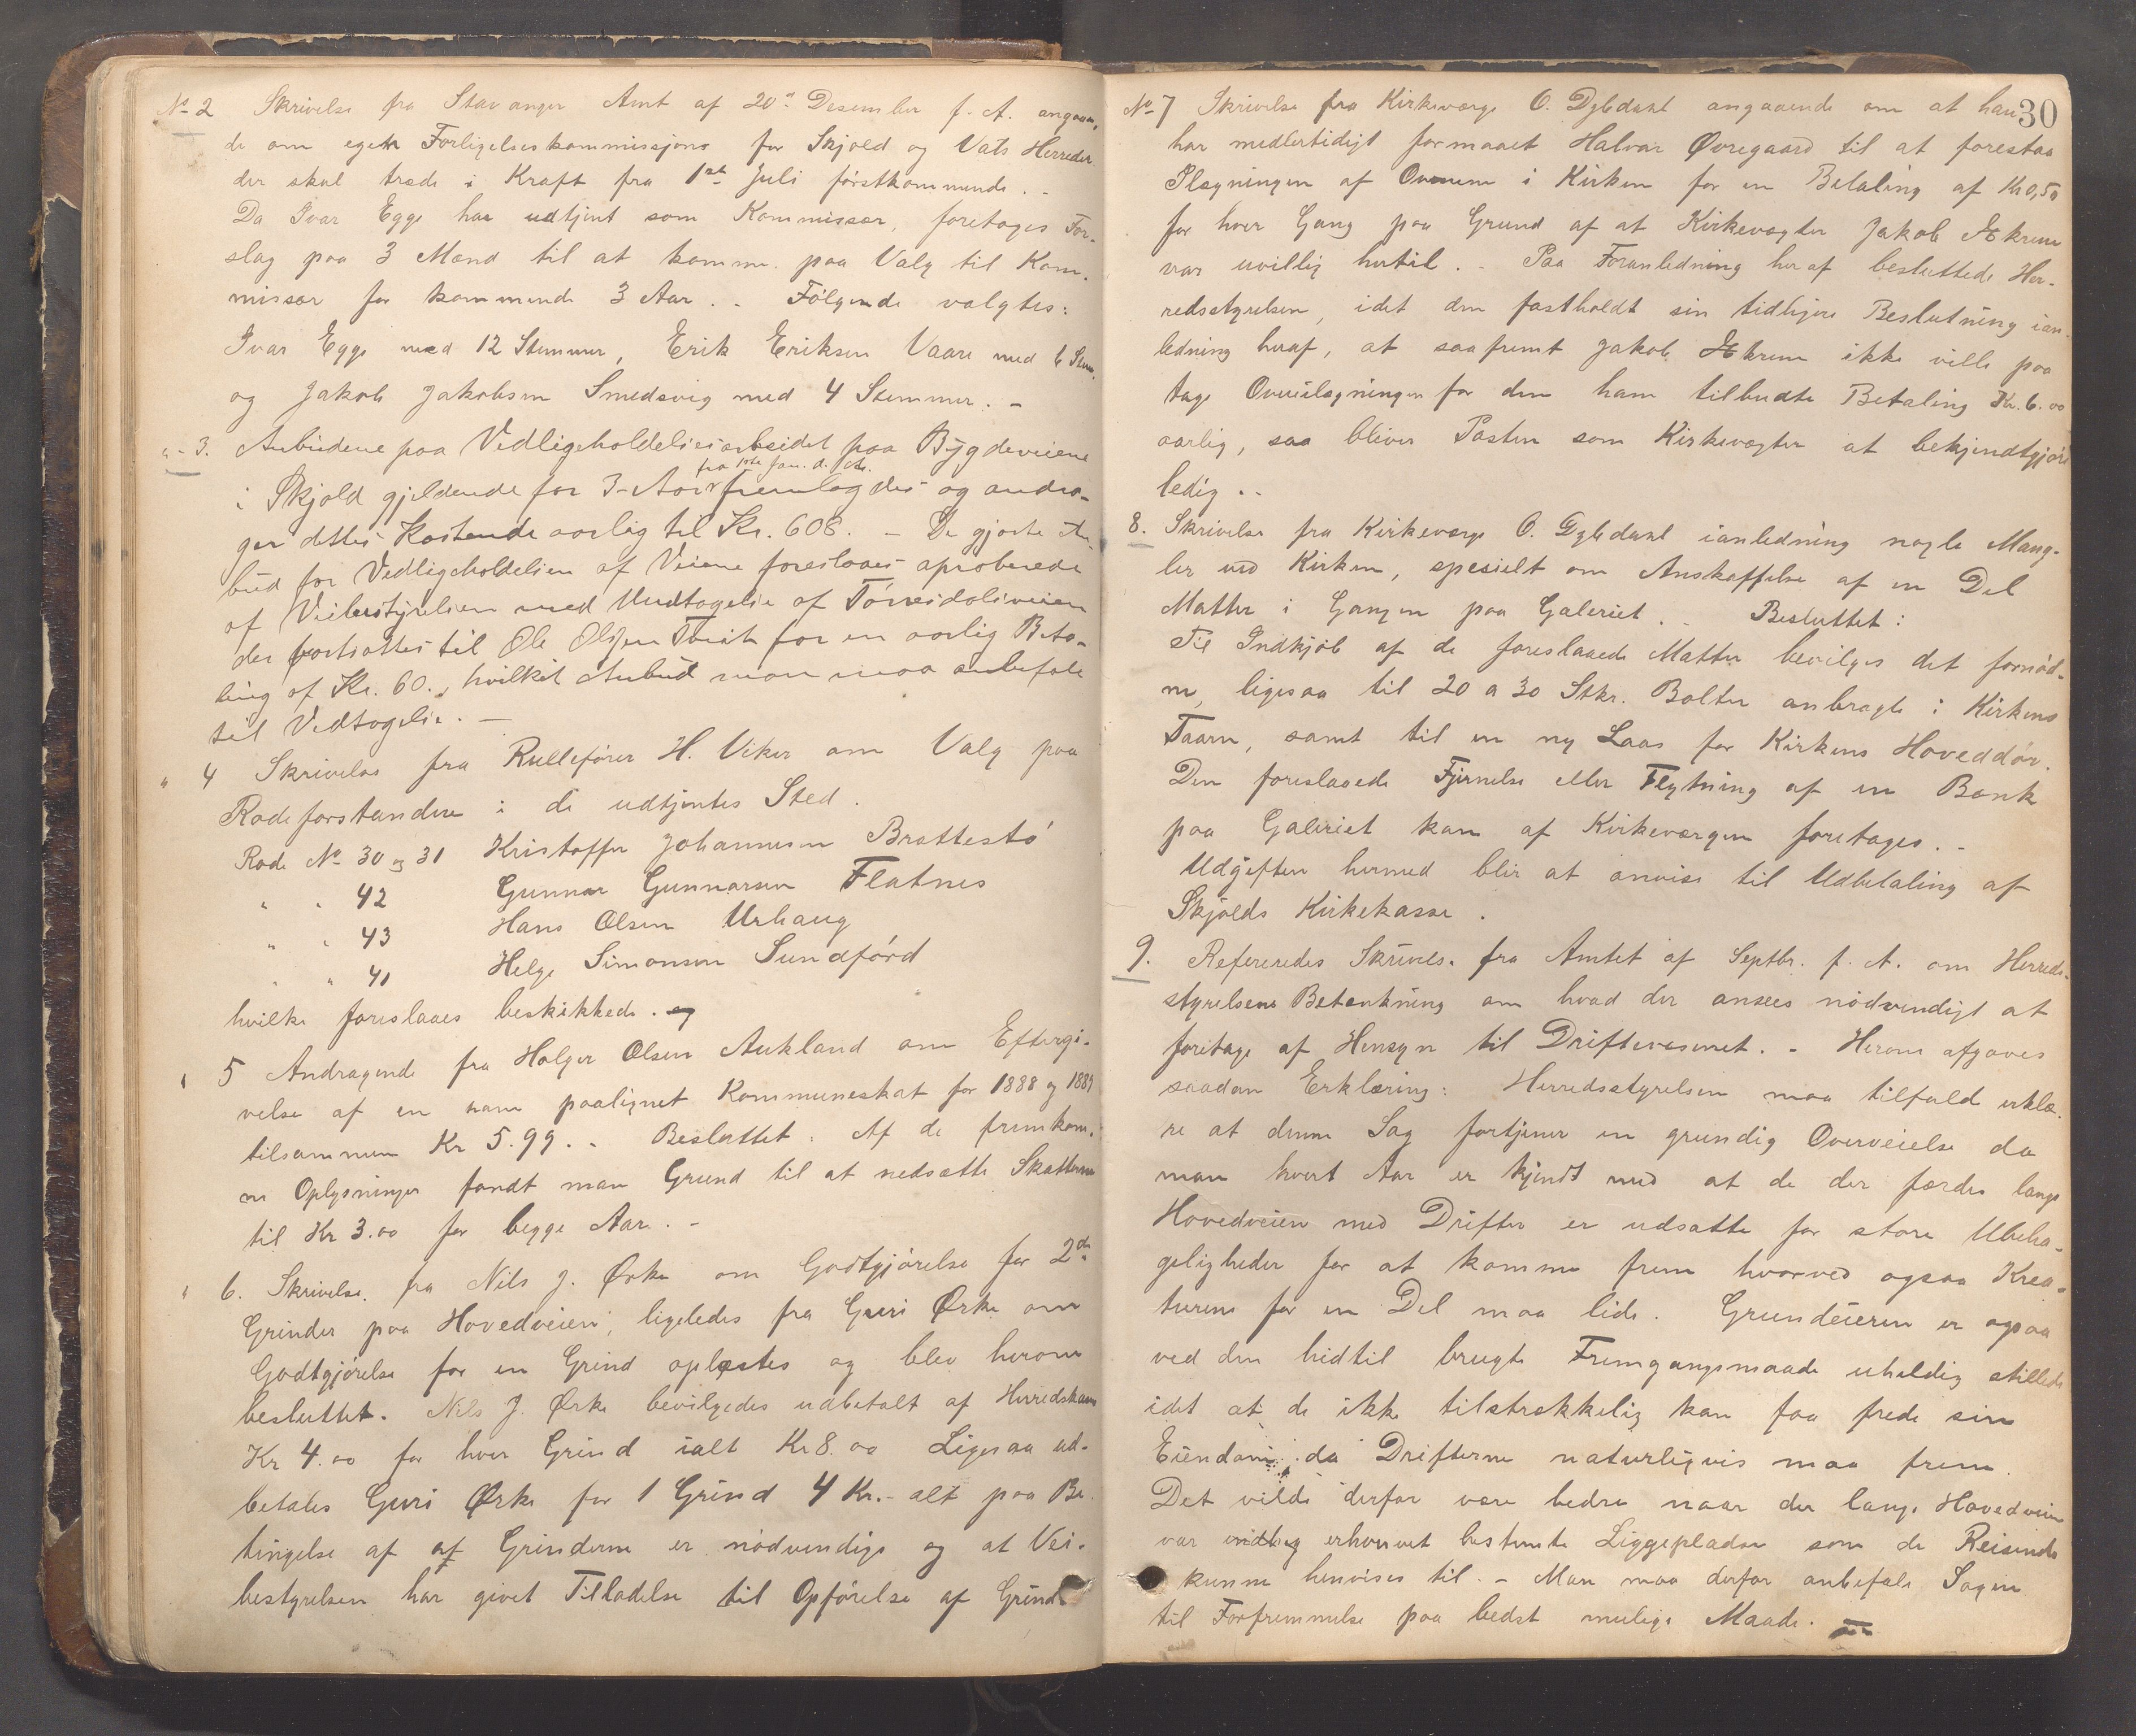 No 2 Skrivelse fra Stavanger Amt af 20de Desember f. A. angaaen,
de om egen Forligelseskommissjons for Skjold og Vats Herreder
der skal træde i Kraft fra 1ste Juli förstkommende. -
Da Ivar Egge har udtjent som Kommissær, foretages For-
slag paa 3 Mænd til at komme paa Valg til Kom-
missær for kommende 3 Aar. - Fölgende valgtes:
Ivar Egge med 12 Stemmer, Erik Eriksen Vaare med 6 Stem.
og Jakob Jakobsen Smedsvig med 4 Stemmer. -
" - 3. Anbudene paa Vedligeholdelsesarbeidet paa Bygdeveiene
fra 1ste Jan. d. A.
i Skjold gjeldende for 3-Aar fremlagdes og andra-
ger dettes Kostende aarlig til Kr. 608. - De gjorte An-
bud for Vedligeholdelsen af Veiene foreslaaes aproberede
af Veibestyrelsen med Undtagelse af Törresdalsveien
der fortsattes til Ole Olsen Tveit for en aarlig Beta-
ling af Kr. 60., hvilket Anbud man maa anbefale
til Vedtagelse. -
" 4 Skrivelse fra Rullefører H. Viker om Valg paa
Rodeforstandere i de udtjentes Sted.
Rode No 30 og 31 Kristoffer Johannesen Brattestö
" " 42 Gunnar Gunnarsen Flatnes
" " 43 Hans Olsen Urhaug
" " 41 Helge Simonsen Sundförd
hvilke foreslaaes beskikkede.
" 5 Andragende fra Holger Olsen Aukland om Eftergi-
velse af en ham paalignet Kommuneskat for 1888 og 1889
tilsammen Kr 5.99. - Besluttet: Af de fremkom-
ne Oplysninger fandt man Grund til at nedsætte Skatterne
til Kr 3.00 for begge Aar. -
" 6. Skrivelse fra Nils J. Ørke om Godtgjörelse for 2de
Grinder paa Hovedveien, ligeledes fra Guri Ørke om
Godtgjörelse for en Grind oplæstes og blev herom
besluttet. Nils J. Ørke bevilgedes udbetalt af Herredskassen
Kr 4.00 for hver Grind ialt Kr 8.00 Ligesaa ud-
betales Guri Ørke for 1 Grind 4 Kr. - alt paa Be-
tingelse af at Grinderne er nödvendige og at Vei-
bestyrelsen har givet Tilladelse til Opförelse af Grinde
30
No 7 Skrivelse fra Kirkeværge O. Dybdahl angaaende om at han
har medlertidigt formaaet Halvar Øvregaard til at forestaa
Plegningen af Ovnene i Kirken for en Betaling af Kr 0,50
for hver Gang paa Grund af at Kirkevægter Jakob Økrene
var uvillig hertil. - Paa Foranledning heraf besluttede Her-
redsstyrelsen, idet den fastholdt sin tidligere Beslutning ian-
ledning heraf, at saafremt Jakob Økrene ikke ville paa
tage Ovneilægningen for den ham tilbudte Betaling Kr. 6.00
aarlig, saa bliver Posten som Kirkevægter at bekjendtgjöre
ledig. -
8. Skrivelse fra Kirkeværge O. Dybdahl ianledning nogle Mang-
ler ved Kirken, spesielt om Anskaffelse af en Del
Matter i Gangen paa Galeriet. - Besluttet:
Til Indkjöb af de foreslaaede Matter bevilges det fornöd-
ne, ligesaa til 20 a 30 Stkr. Bolter anbragte i Kirkens
Taarn, samt til en ny Laas for Kirkens Hoveddör.
Den foreslaaede Fjernelse eller Flytning af en Bænk
paa Galeriet kan af Kirkeværgen foretages. -
Udgiften hermed blir at anvise til Udbetaling af
Skjolds Kirkekasse.
9. Refereredes Skrivels. fra Amtet af Septbr. f. A. om Herreds-
styrelsens Betænkning om hvad der ansees nödvendigt at
foretage af Hensyn til Driftevæsenet. - Herom afgaves
saadan Erklæring: Herredsstyrelsen maa tilfuld erklæ-
re at denne Sag fortjener en grundig Overveielse da
man hvert Aar er kjendt med at de der færdes langs
Hovedveien med Drifter er udsatte for store Ubeha-
geligheder for at komme frem hvorved ogsaa Krea-
turene for en Del maa lide. Grundeieren er ogsaa
ved den hidtil brugte Fremgangsmaade uheldig stillede
idet at de ikke tilstrækkelig kan faa frede sin
Eiendom, da Drifterne naturligvis maa frem.
Det vilde derfor være bedre naar der langs Hovedveien
var erhvervet bestemte Liggepladse som de Reisende
kunne henvises til. - Man maa derfor anbefale Sagen
til Forfremmelse paa bedst mulige Maade. -